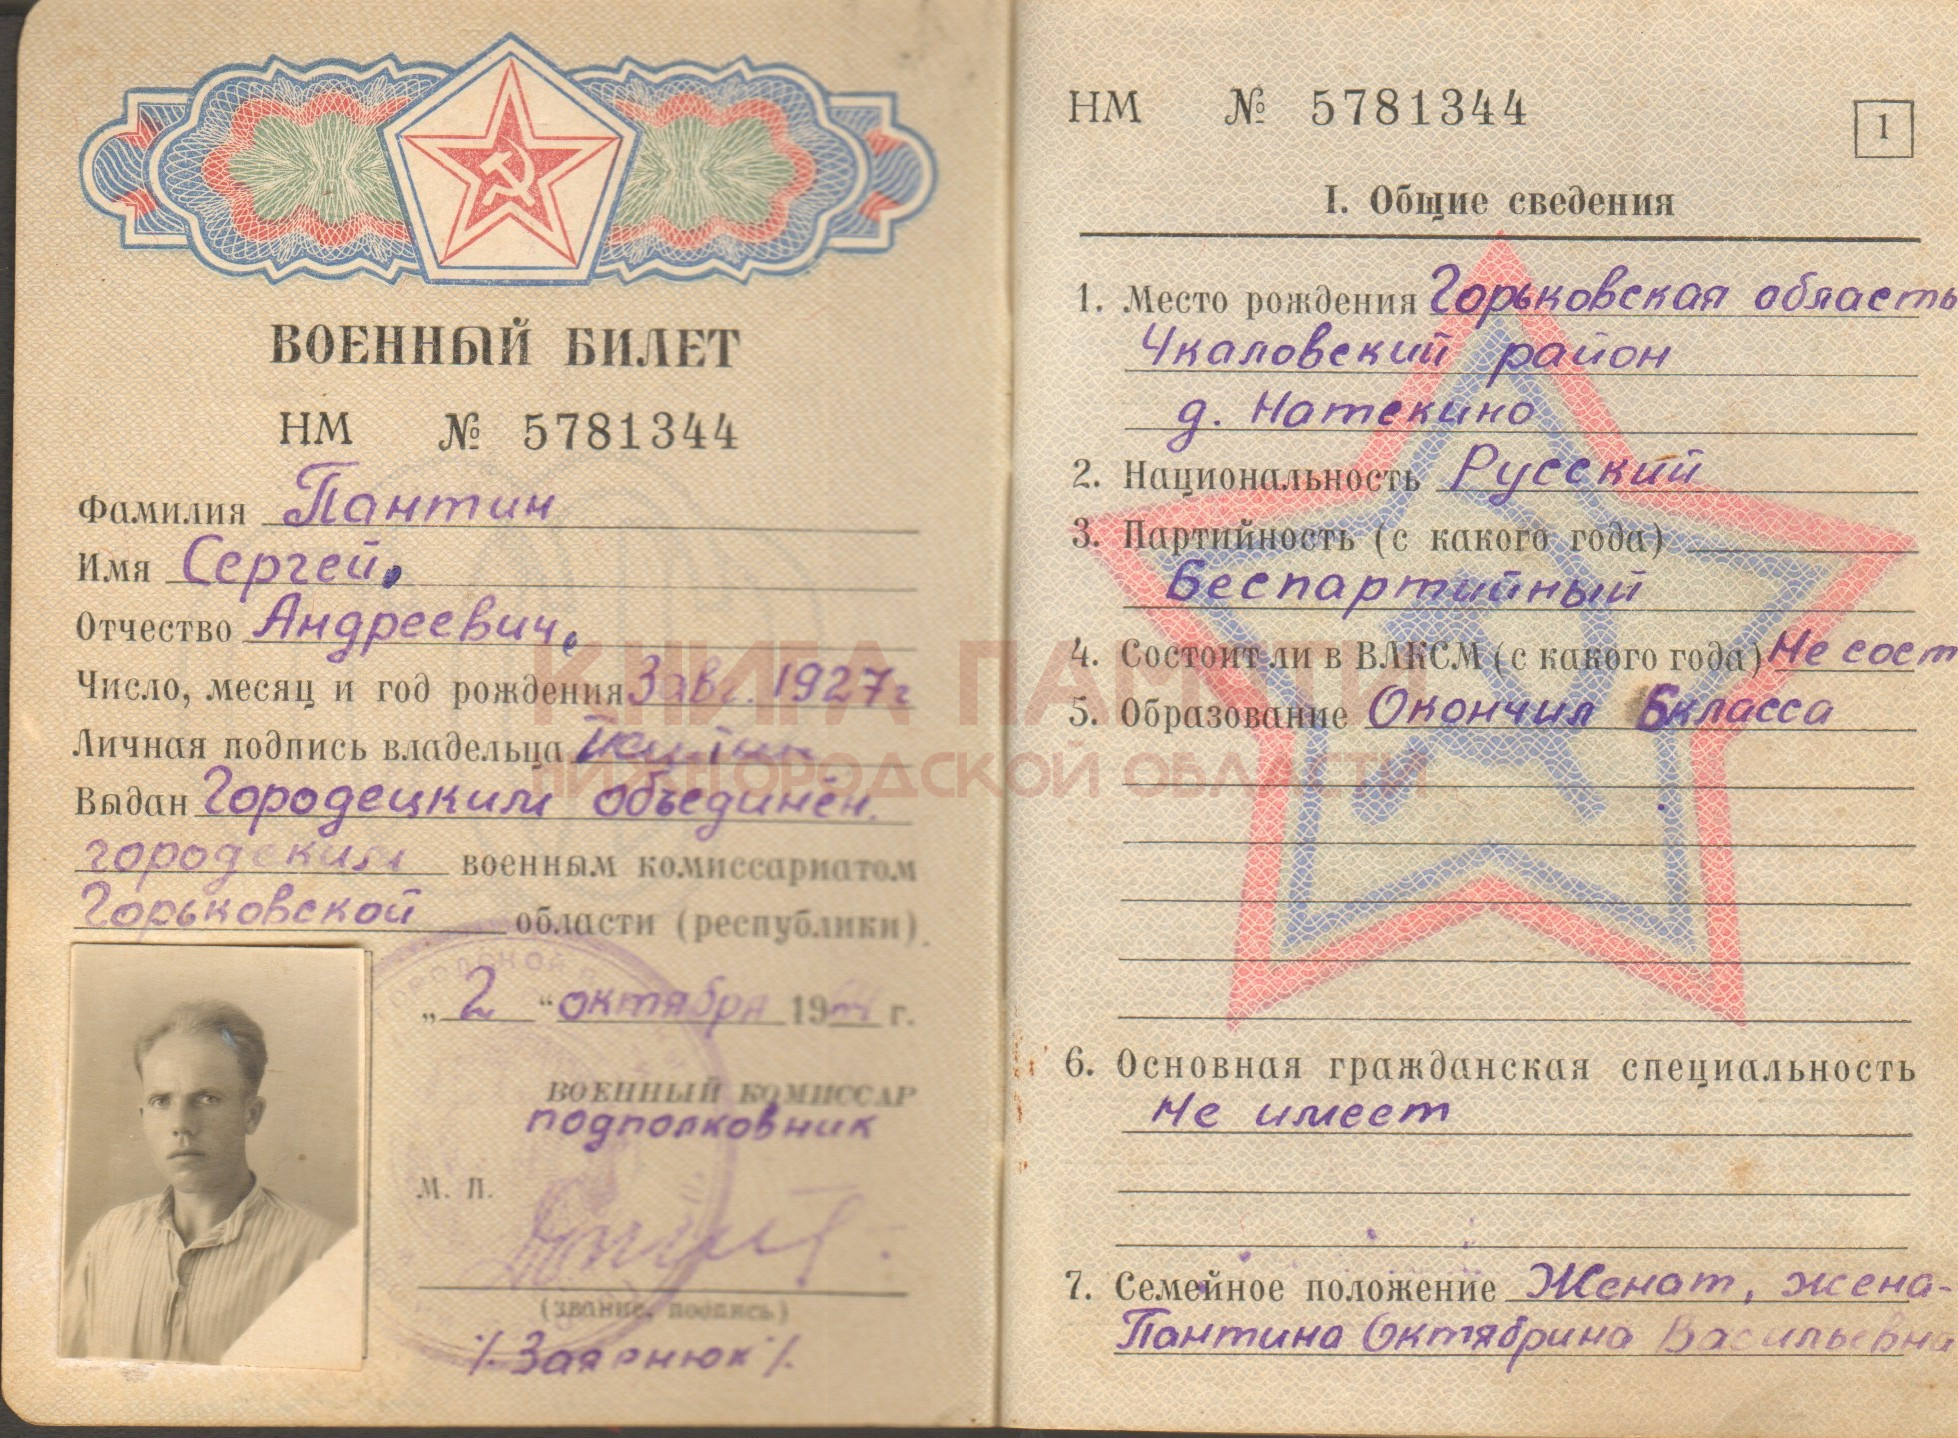 ВОЕННЫЙ БИЛЕТ
НМ № 5781344
Фамилия Пантин
Имя Сергей,
Отчество Андреевич,
Число, месяц и год рождения 3 авг. 1927 г
Личная подпись владельца
Выдан Городецким объединён.
городским военным комиссариатом
Горьковской области (республики).
„2“ октября 19 г.
ВОЕННЫЙ КОМИССАР
подполковник
М. П.
(звание, подпись)
/Заярнюк/.
НМ № 5781344
1
I. Общие сведения
1. Место рождения Горьковская область
Чкаловский район
д. Натекино
2. Национальность Русский
3. Партийность (с какого года)
Беспартийный
4. Состоит ли в ВЛКСМ (с какого года) Не сост
5. Образование Окончил 6 класса
6. Основная гражданская специальность
Не имеет
7. Семейное положение Женат, жена-
Пантина Октябрина Васильевна
КНИГА ПАМЯТИ
НИЖЕГОРОДСКОЙ ОБЛАСТИ